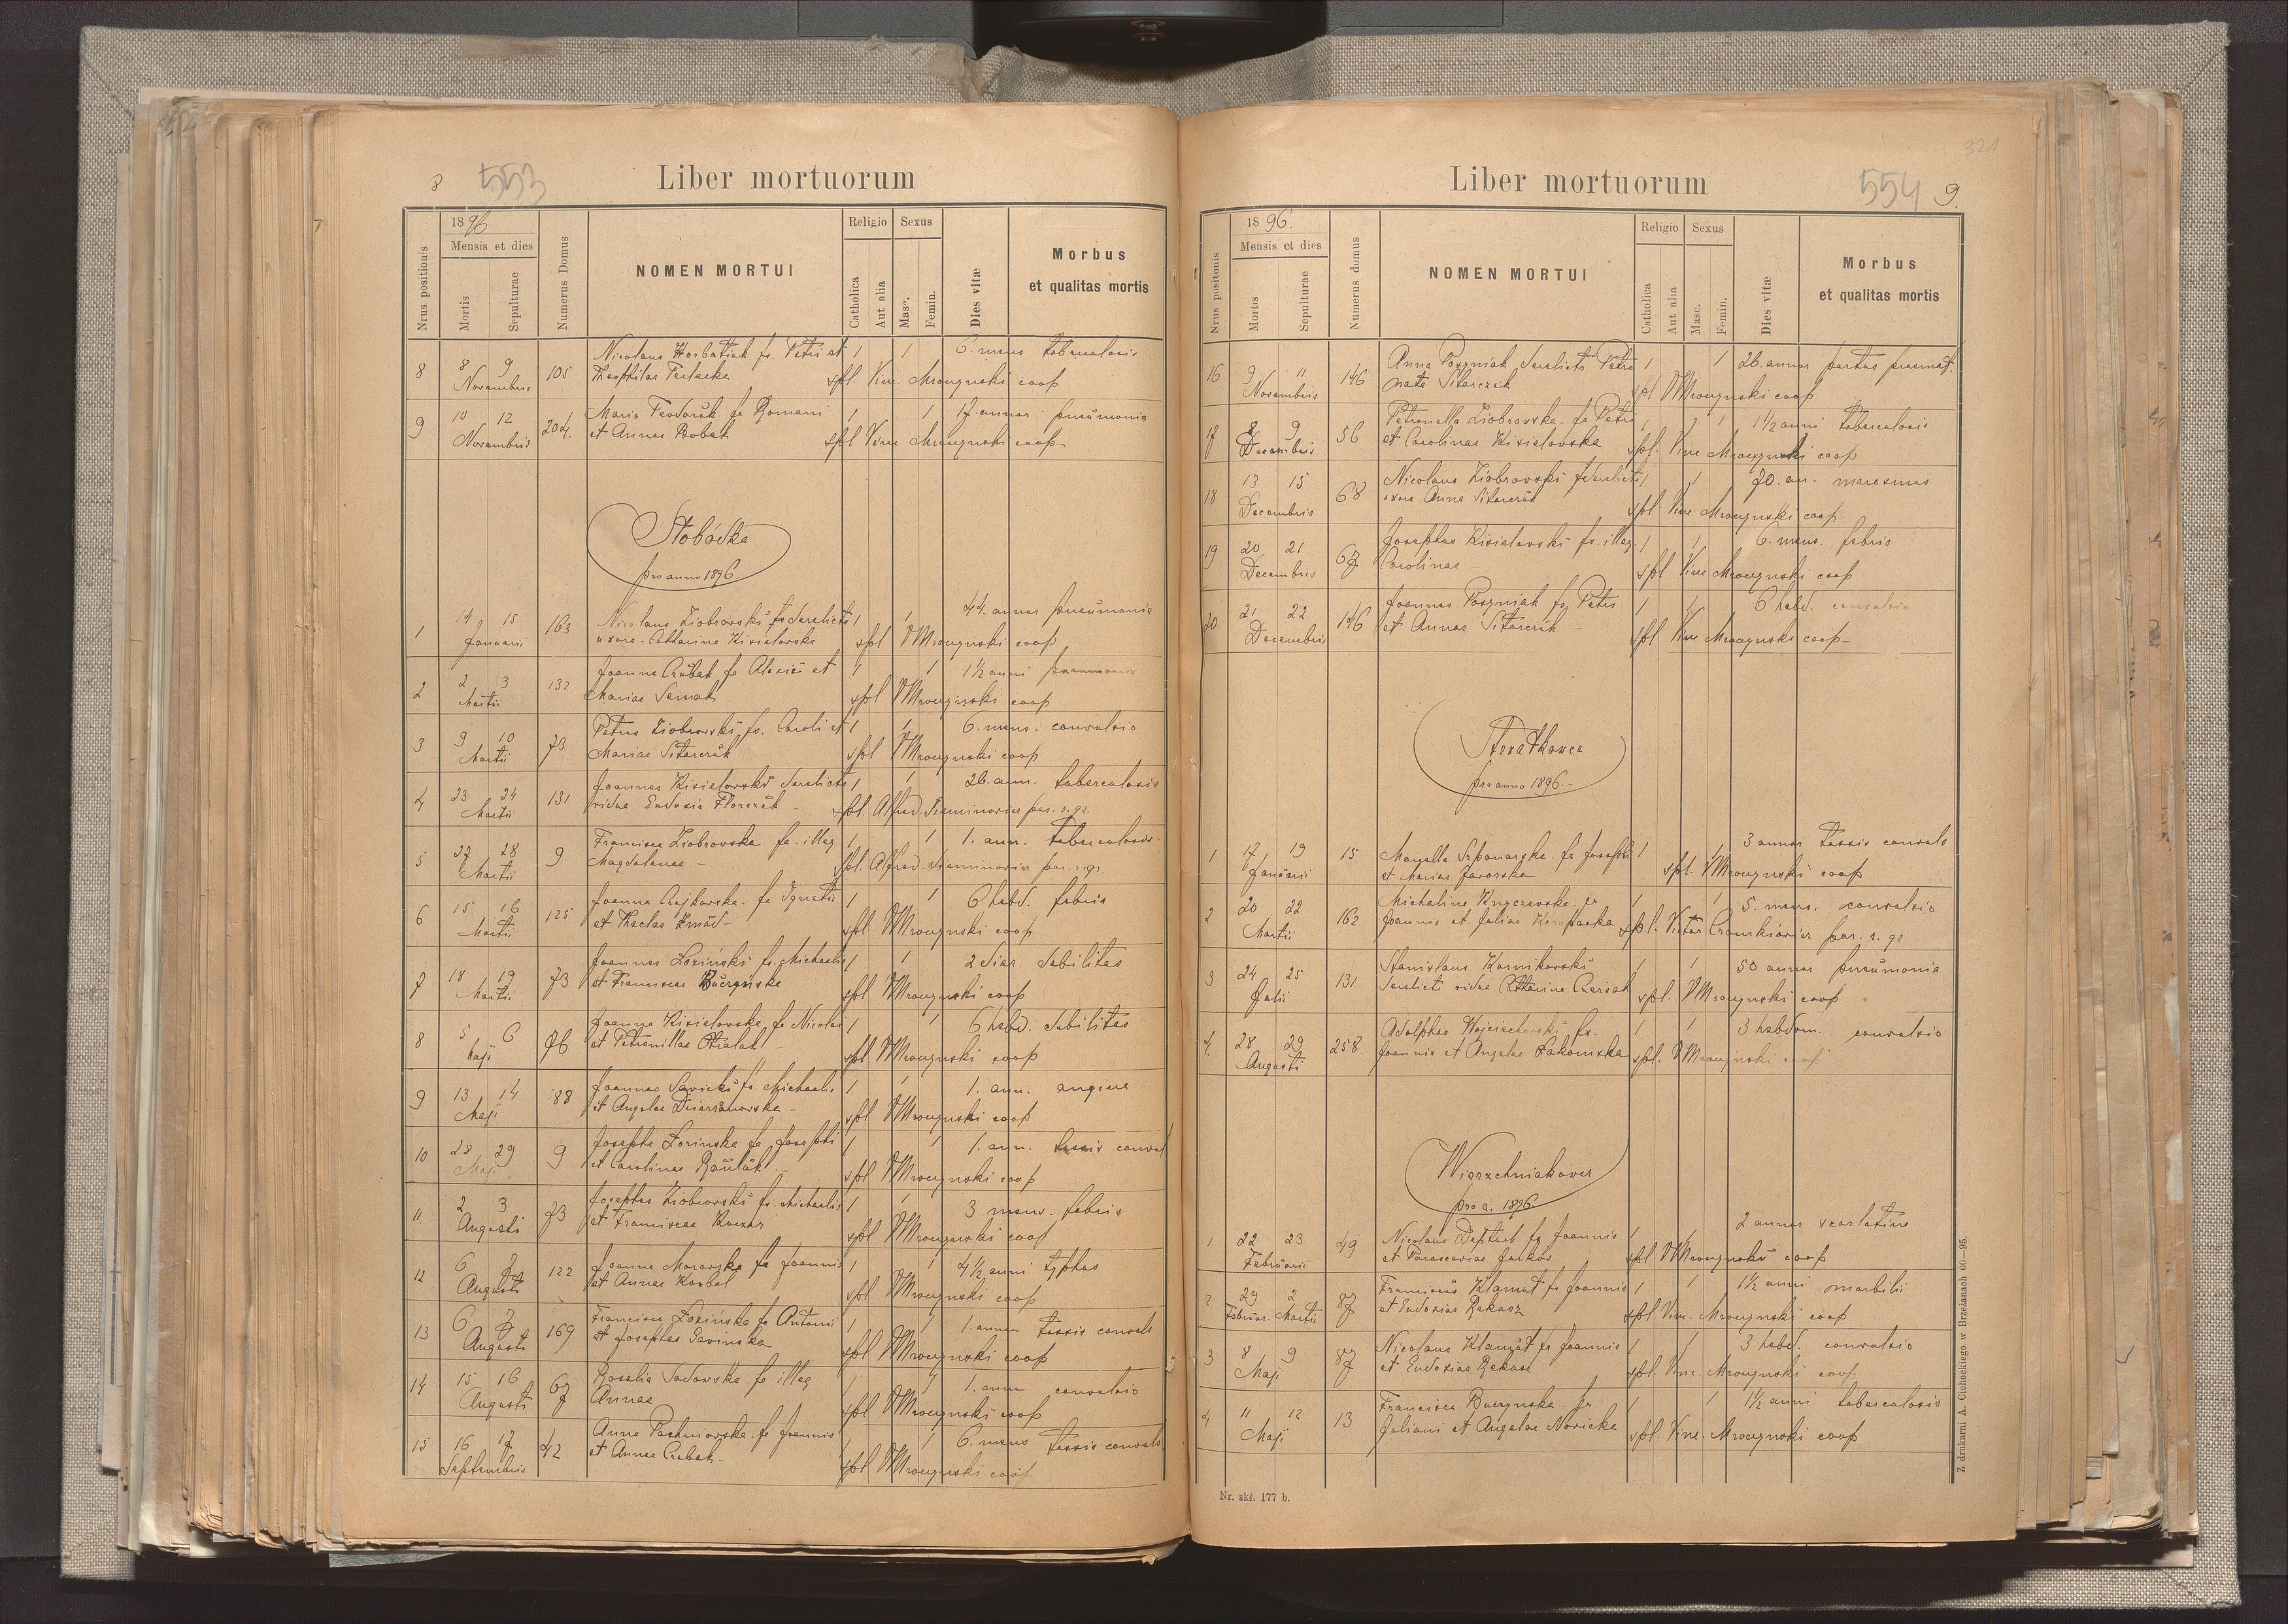 8 553 Liber mortuorum
Nrus positionis
1896
Mensis et dies
Mortis
Sepulturae
Numerus Domus
NOMEN MORTUI
Religio
Catholica
Aut alia
Sexus
Masc.
Femin.
Dies vitæ
Morbus
et qualitas mortis
8 8 9 105 Nicolaus Horbatiuk fs. Petri et 1 1 6. mens tuberculosis
Novembris Theophilae spl. Vinc. Mroczynski coop
9 10 12 204. Maria Teodoruk fa Romani 1 1 17. annor pneumonia
Novembris et Annae Bobek spl Vinc Mroczynski coop
Słobódka
pro anno 1896.
1 14 15 163 Nicolaus Ziobrovski fs derelicta 1 1 44. annor pneumonia
Januarii uxore Catharina Kisielovska spl V Mroczynski coop
2 2 3 132 Joanna Czubak fa Alexii et 1 1 1½ anni pneumonia
Martii Mariae Semak spl V Mroczynski coop
3 9 10 73 Petrus Ziobrovski fs. Caroli et 1 1 6. mens. convulsio
Martii Mariae Sitarczuk spl V Mroczynski coop
4 23 24 131 Joannes Kisielovski derelicta 1 1 26. ann. tuberculosis
Martii vidua Eudoxia Florczuk spl. Alfred. par. r. gr.
5 27 28 9 Francisca Ziobrovska fa illeg 1 1 1. ann. tuberculosis
Martii Magdalenae spl. Alfred. par. r. gr.
6 15 16 125 Joanna Czajkovska fa Ignatii 1 1 6 hebd. febris
Martii et Theclae spl V Mroczynski coop
7 18 19 73 Joannes Loziński fs. Michaelis 1 1 2 dier. debilitas
Martii et Franciscae Buczyńska spl V Mroczynski coop
8 5 6 76 Joanna Kisielovska fa Nicolai 1 1 6 hebd. debilitas
Maji et Petronillae spl V Mroczynski coop
9 13 14 88 Joannes Savicki fs. Michaelis 1 1 1. ann. angina
Maji et Angelae spl V Mroczynski coop
10 28 29 9 Josepha Lozinska fa Josephi 1 1 1. ann. tussis convul
Maji et Carolinae spl V Mroczynski coop
11. 2 3 73 Josephus Ziobrovski fs. Michaelis 1 1 3 mens. febris
Augusti et Franciscae spl V Mroczynski coop
12 6 7 122 Joanna Moravska fa Joannis 1 1 4½ anni typhus
Augusti et Annae spl V Mroczynski coop
13 6 7 169 Francisca Lozińska fa Antonii 1 1 1. annum tussis convuls
Augusti et Josephae spl V Mroczynski coop
14 15 16 67 Rosalia Sadovska fa illeg 1 1 1. ann convulsio
Augusti Annae spl V Mroczynski coop
15 16 17 42 Anna fa Joannis 1 1 6. mens tussis convuls
Septembris et Annae Czubak spl V Mroczynski coop
321
Liber mortuorum 554 9.
Nrus postonis
1896.
Mensis et dies
Mortis
Sepulturae
Numerus domus
NOMEN MORTUI
Religio
Catholica
Aut alia
Sexus
Masc.
Femin.
Dies vitæ
Morbus
et qualitas mortis
16 9 11 146 Anna Pozniak derelicto Petro 1 1 26. annor partus praemat.
Novembris nata Sitarczuk spl V Mroczynski coop
17 8 9 56 Petronella Ziobrovska fa Petri 1 1 1½ anni tuberculosis
Decembris et Carolinae Kisielovska spl. Vinc Mroczynski coop
18 13 15 68 Nicolaus Ziobrovski derelicta 1 1 70. an. marasmus
Decembris uxore Anna Sitarczuk spl Vinc Mroczynski coop
19 20 21 67 Josephus Kisielovski fs. illeg. 1 1 6. mens. febris
Decembris Carolinae spl Vinc Mroczynski coop
20 21 22 146 Joannes Pozniak fs Petri 1 1 6 hebd. convulsio
Decembris et Annae Sitarczuk spl Vinc Mroczynski coop
Strzałkowce
pro anno 1896.
1 17 19 15 fa Josephi 1 1 3 annor tussis convuls
Januarii et Mariae Javorska spl. V Mroczynski coop
2 20 22 162 Michalina Kuczevska fa 1 1 5. mens. convulsio
Martii Joannis et Juliae spl. Victor par. r. gr
3 24 25 131 Stanislaus Karnikovski 1 1 50 annor pneumonia
Julii derelicta vidua Catharina spl. V Mroczynski coop
4. 28 29 258. Adolphus Wojciechovski fs. 1 1 3 hebdom. convulsio
Augusti Joannis et Angelae Zakomska spl. V Mroczynski coop
Wierzchniakovce
pro a. 1896
1 22 23 49 Nicolaus fs Joannis 1 1 2 annor scarlatina
Februarii et Parasceviae spl V Mroczynski coop
2 29 2 87 Franciscus Klamut fs Joannis 1 1 1½ anni morbili
Februar. Martii et Eudoxiae Rekasz spl Vinc. Mroczynski coop
3 8 9 87 Nicolaus Klamut fs Joannis 1 1 3 hebd. convulsio
Maji et Eudoxiae Rekasz spl. Vinc. Mroczynski coop
4 11 12 13 Francisca Buczynska fa 1 1 1½ anni tuberculosis
Maji Juliani et Angelae Novicka spl. Vinc. Mroczynski coop
Nr. skł. 177 b.
Z drukarni A. Cichockiego w Brzeżanach 60—95.